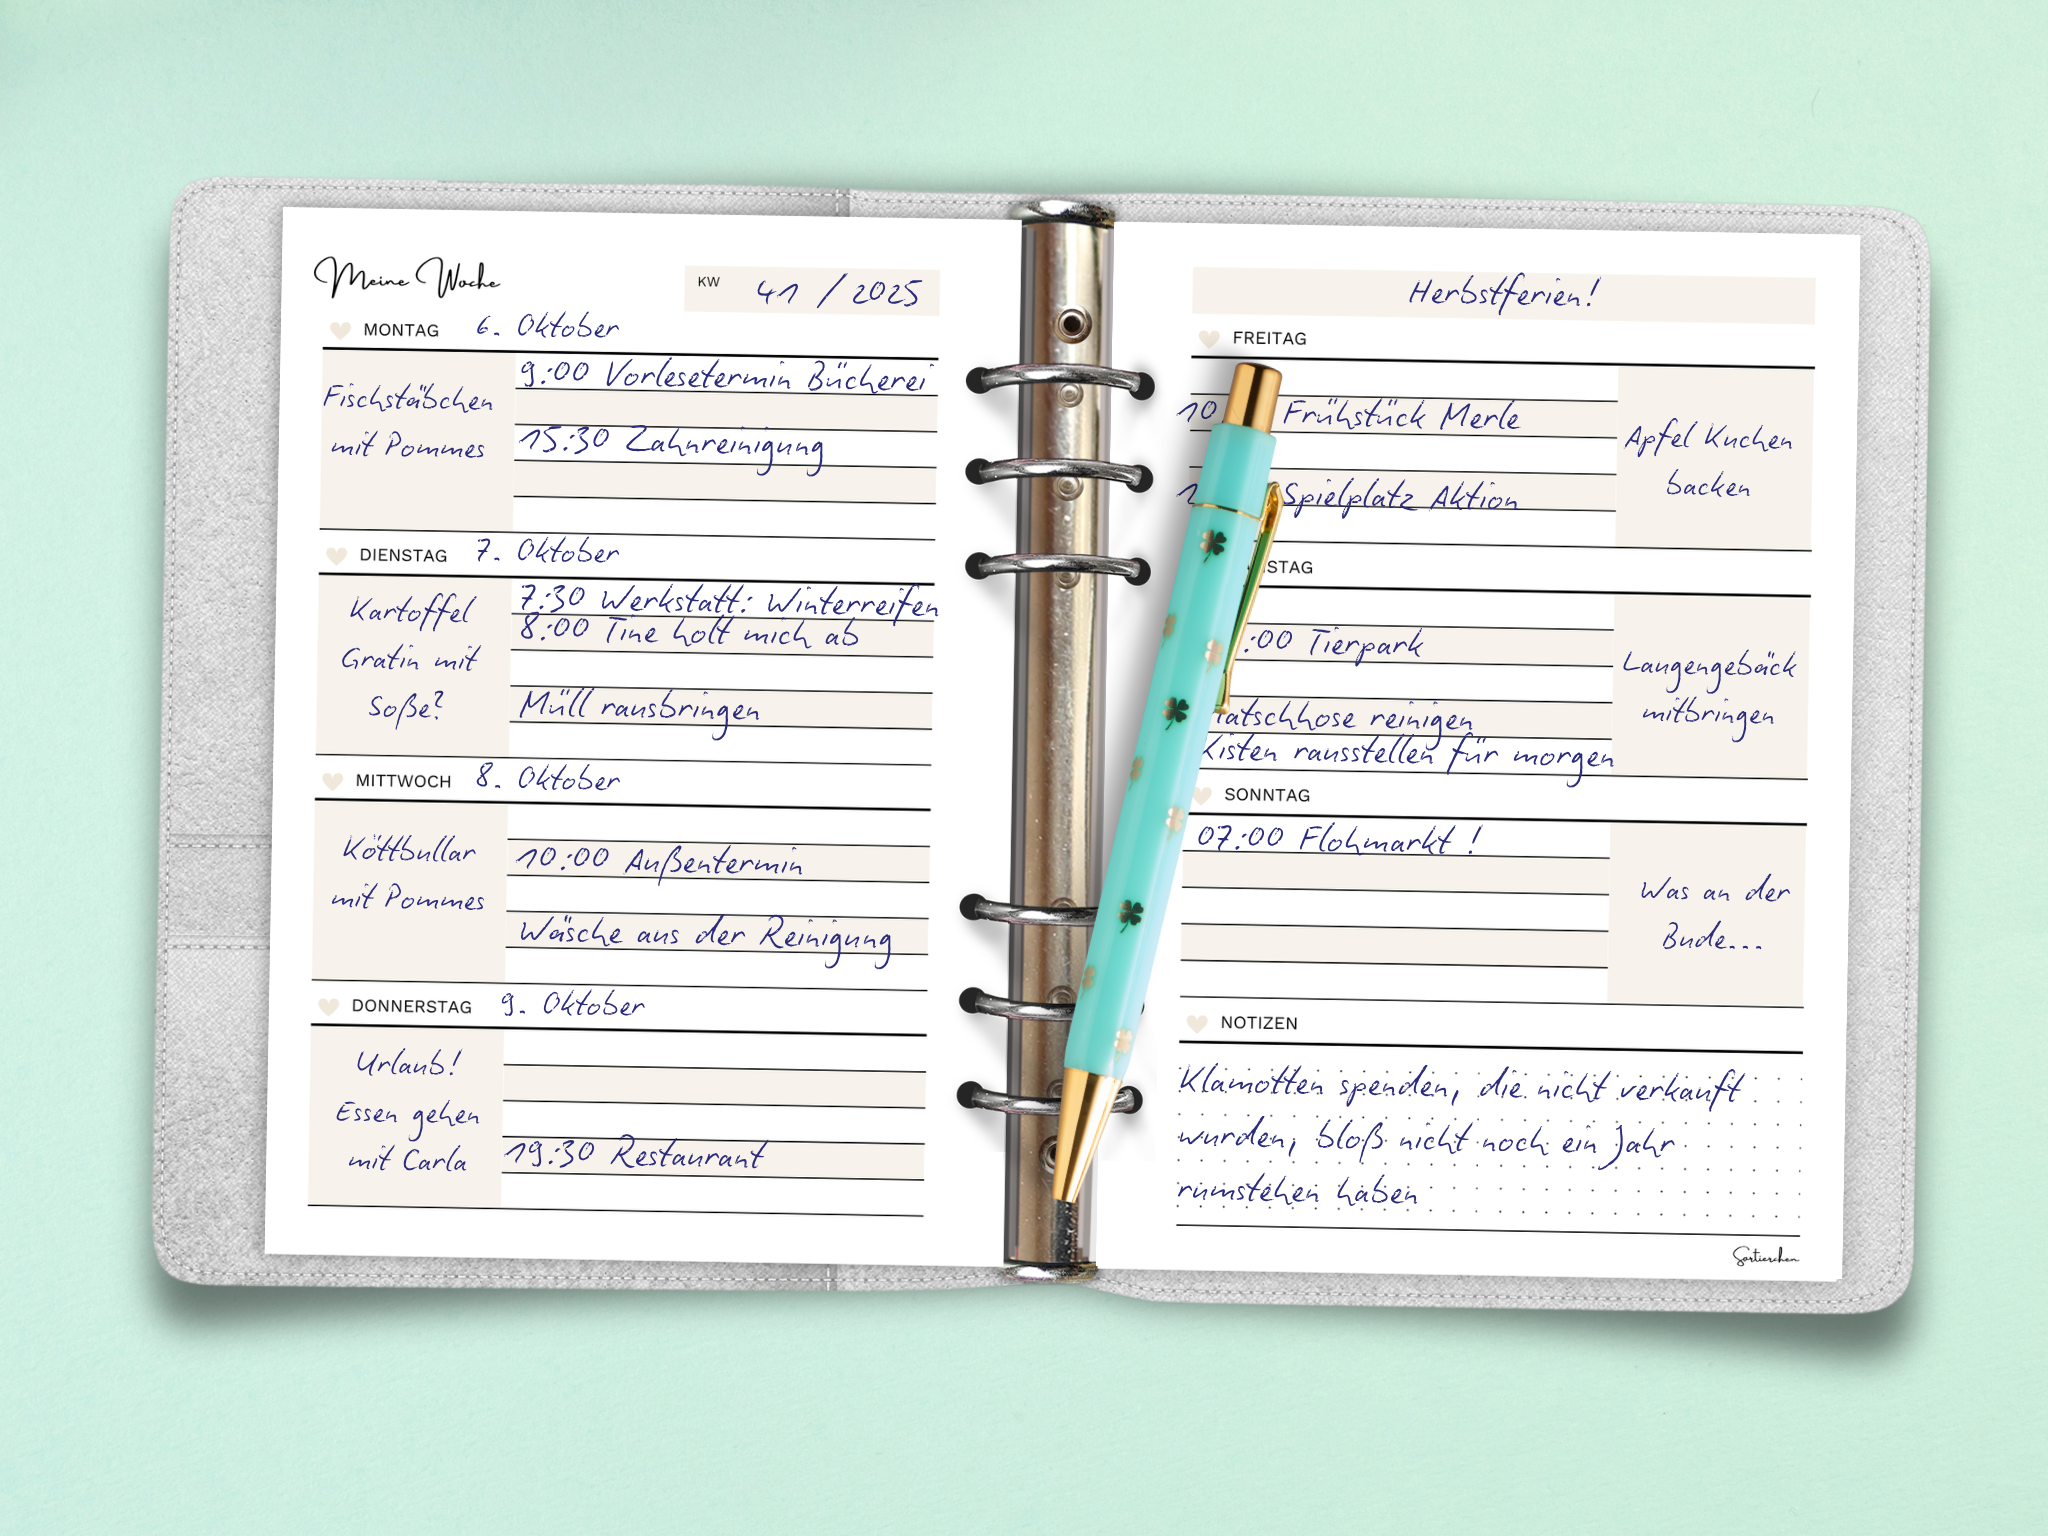 Meine Woche
KW 41 / 2025
MONTAG 6. Oktober
Fischstäbchen
mit Pommes
9:00 Vorlesetermin Bücherei
15:30 Zahnreinigung
DIENSTAG 7. Oktober
Kartoffel
Gratin mit
Soße?
7:30 Werkstatt: Winterreifen
8:00 Tine holt mich ab
Müll rausbringen
MITTWOCH 8. Oktober
Köttbullar
mit Pommes
10:00 Außentermin
Wäsche aus der Reinigung
DONNERSTAG 9. Oktober
Urlaub!
Essen gehen
mit Carla
19:30 Restaurant
Herbstferien!
FREITAG
10 Frühstück Merle
Spielplatz Aktion
Apfel Kuchen
backen
STAG
:00 Tierpark
atschhose reinigen
Kisten rausstellen für morgen
Laugengebäck
mitbringen
SONNTAG
07:00 Flohmarkt !
Was an der
Bude...
NOTIZEN
Klamotten spenden, die nicht verkauft
wurden, bloß nicht noch ein Jahr
rumstehen haben
Sortierchen